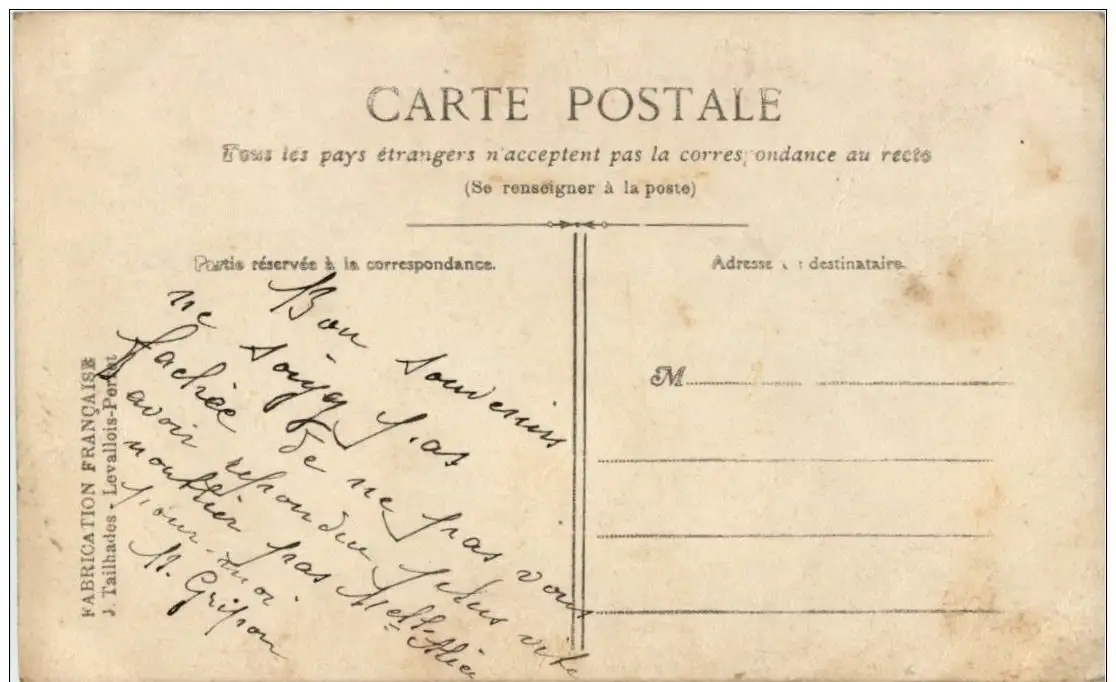 CARTE POSTALE
Tous les pays étrangers n'acceptent pas la correspondance au recto
(Se renseigner à la poste)
Partie réservée à la correspondance.
Adresse du destinataire.
M
FABRICATION FRANÇAISE
J. Tailhades - Levallois-Perret
Bon souvenirs
ne soiyez pas
fachée de ne pas vous
avoir repondue plus vite
noublier pas Melle Alice
pour moi
M. Grison